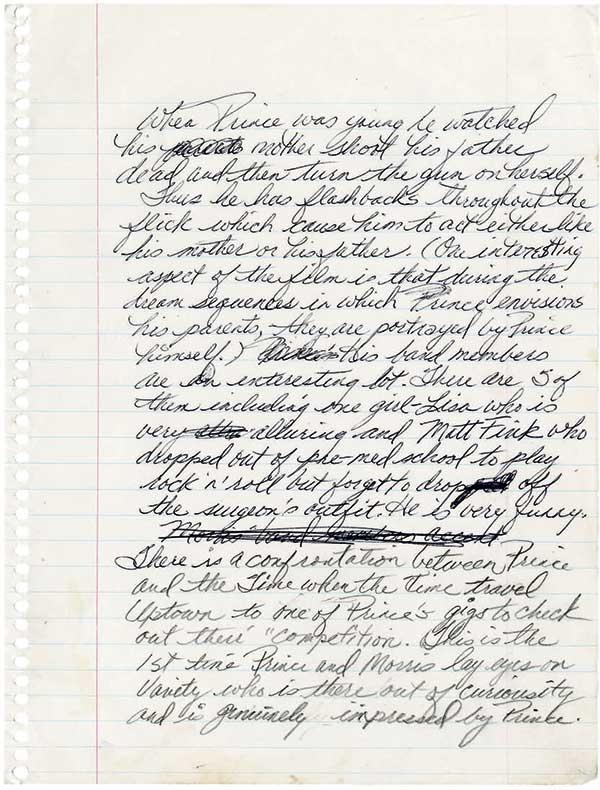 When Prince was young he watched
his parents mother shoot his father
dead and then turn the gun on herself.
Thus he has flashbacks throughout the
flick which cause him to act either like
his mother or his father. (One interesting
aspect of the film is that during the
dream sequences in which Prince envisions
his parents, they are portrayed by Prince
himself.) Prince's His band members
are an interesting lot. There are 5 of
them including one girl-Lisa who is
very alluring and Matt Fink who
dropped out of pre-med school to play
rock 'n' roll but forgot to drop off
the surgeon's outfit. He is very funny.
There is a confrontation between Prince
and the Time when the Time travel
Uptown to one of Prince's gigs to check
out their "competition. This is the
1st time Prince and Morris lay eyes on
Vanity who is there out of curiousity
and is genuinely impressed by Prince.